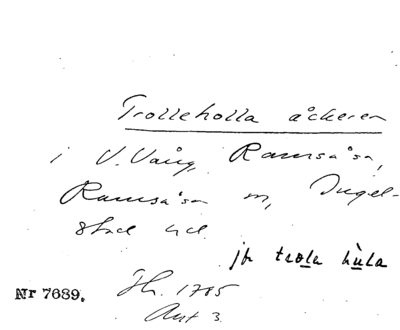 Trolleholla åckeren
i V. Vång, Ramsåsa,
Ramsåsa sn, Ingel-
stad hd.
jfr trola hùla
Nr 7689. Sk. 1785
Akt 3.